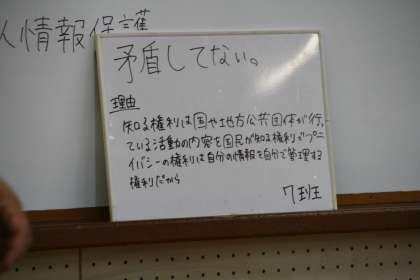 人情報保護
矛盾してない。
理由
知る権利は国や地方公共団体が行っ
ている活動の内容を国民が知る権利でプラ
イバシーの権利は自分の情報を自分で管理する
権利だから
7班